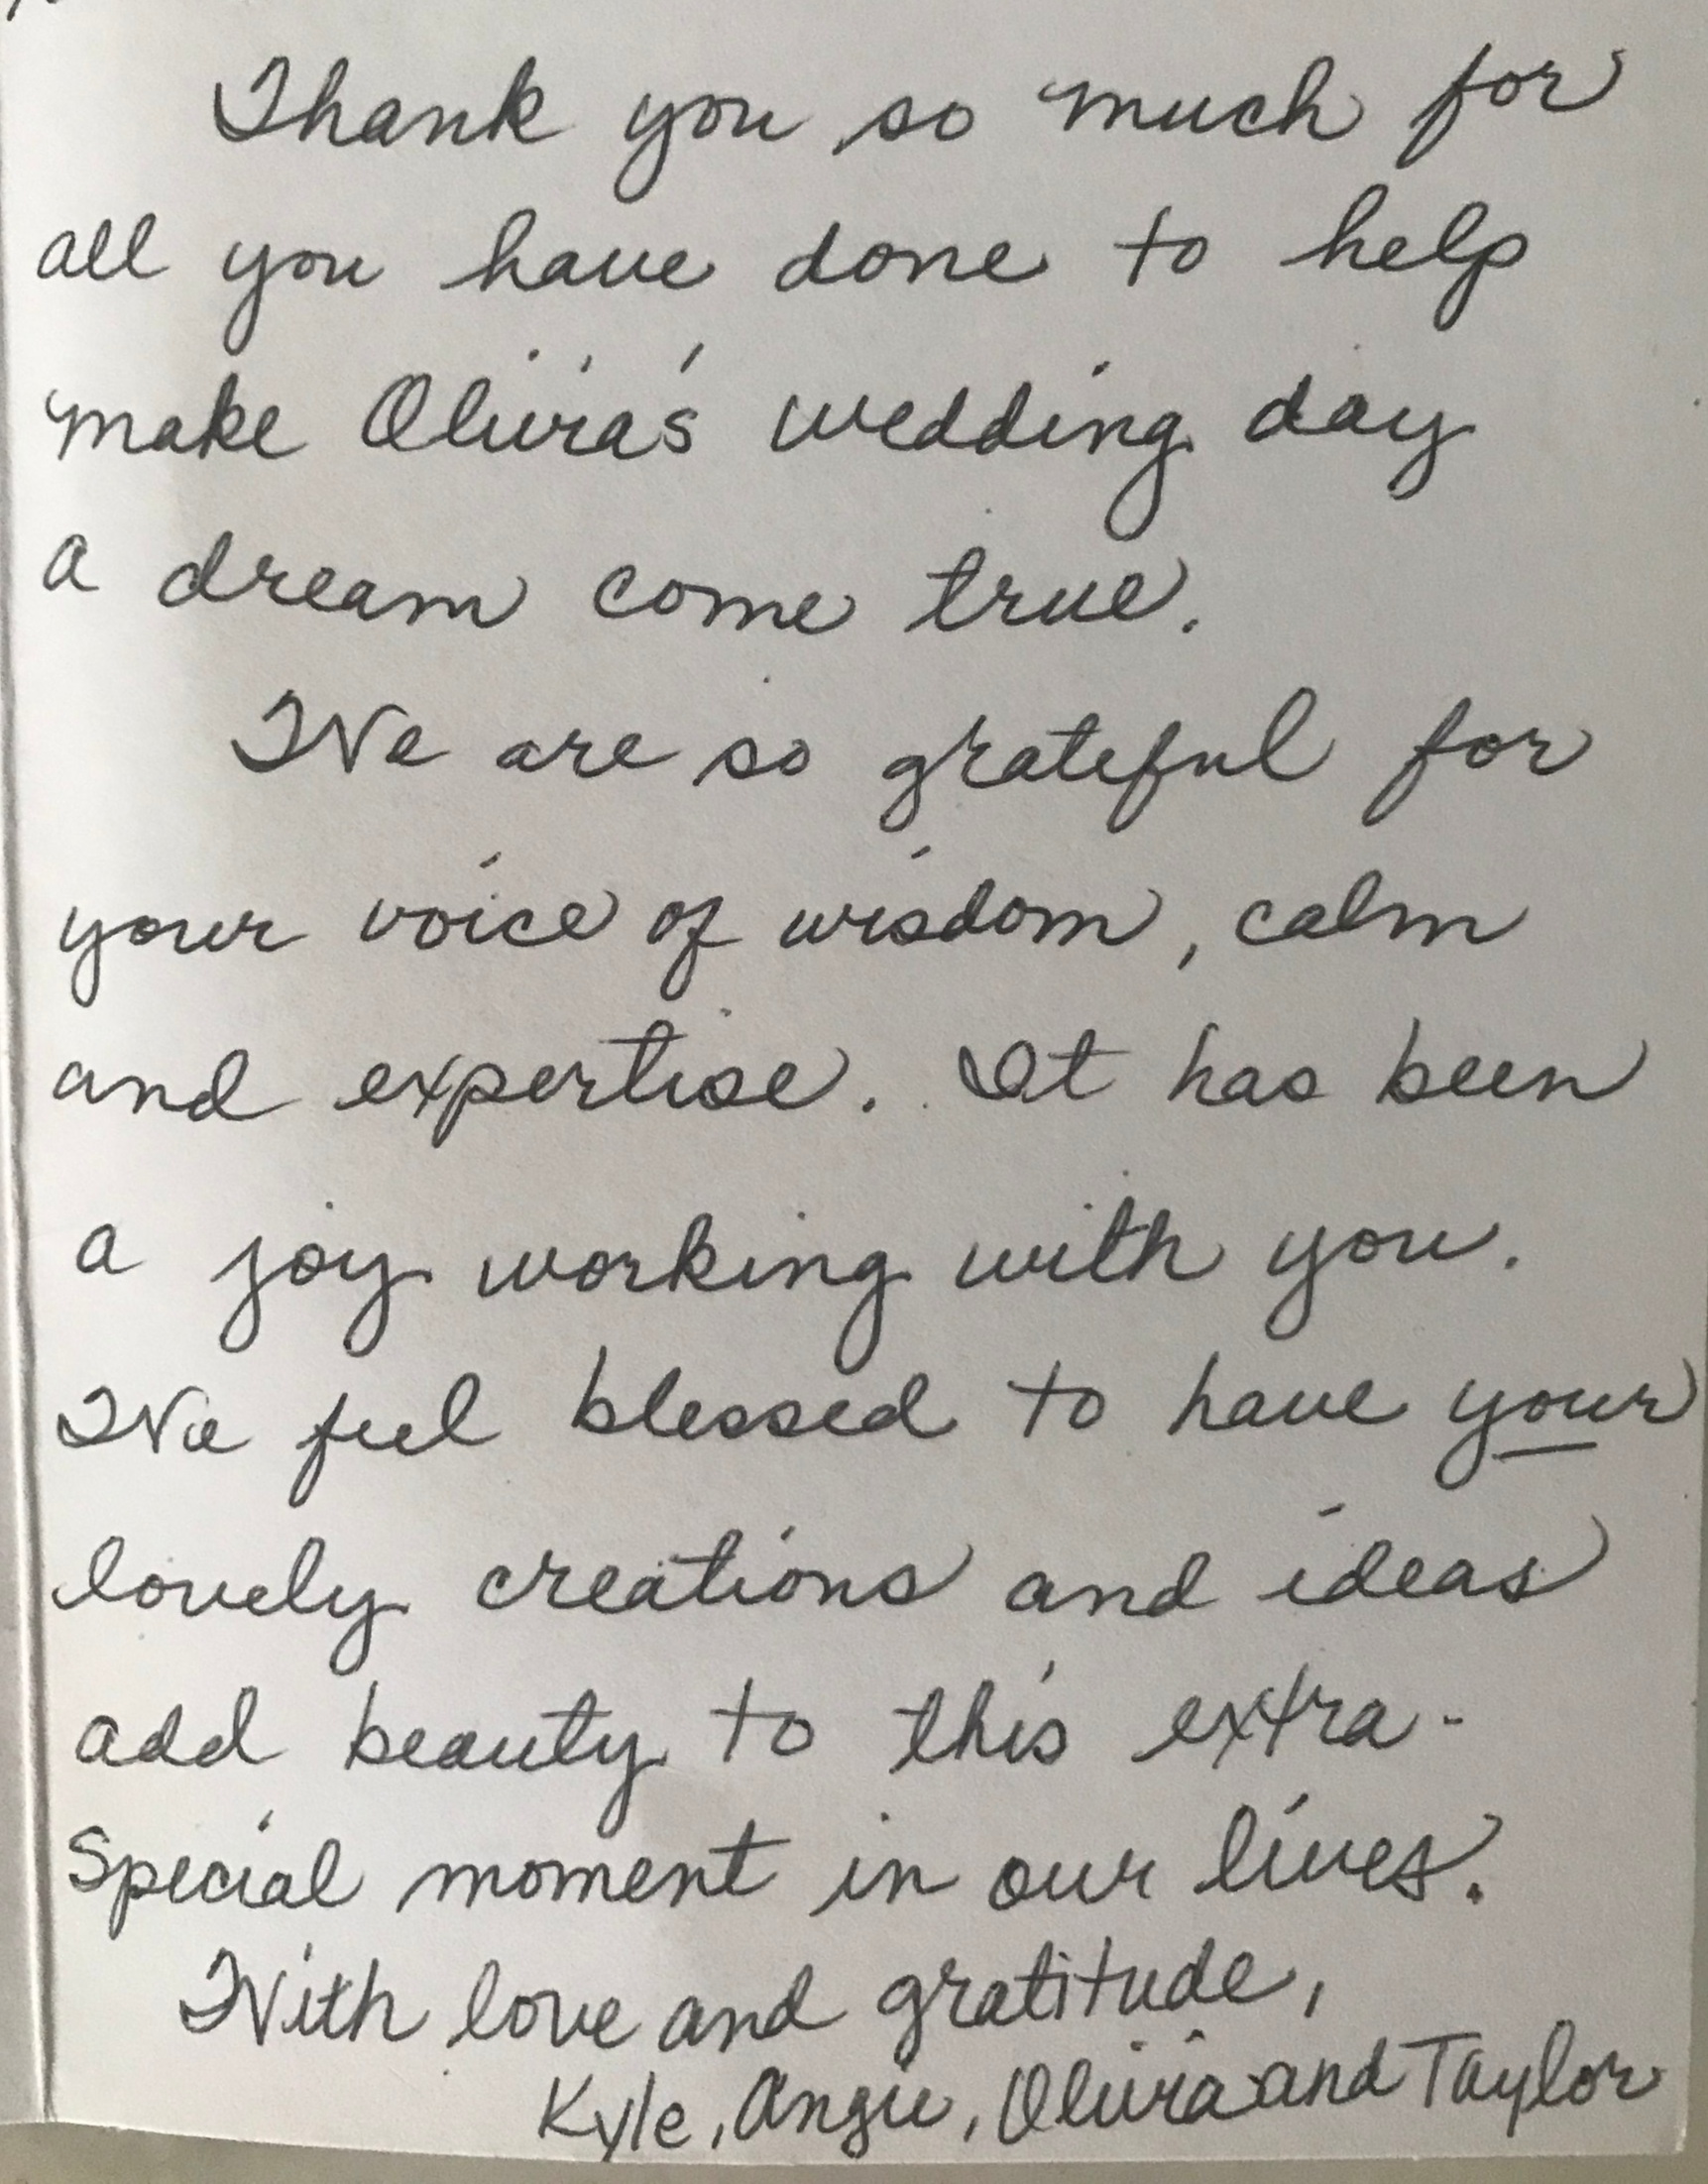 Thank you so much for
all you have done to help
make Olivia's wedding day
a dream come true.
We are so grateful for
your voice of wisdom, calm
and expertise. It has been
a joy working with you.
We feel blessed to have your
lovely creations and ideas
add beauty to this extra-
special moment in our lives.
With love and gratitude,
Kyle, Angie, Olivia and Taylor